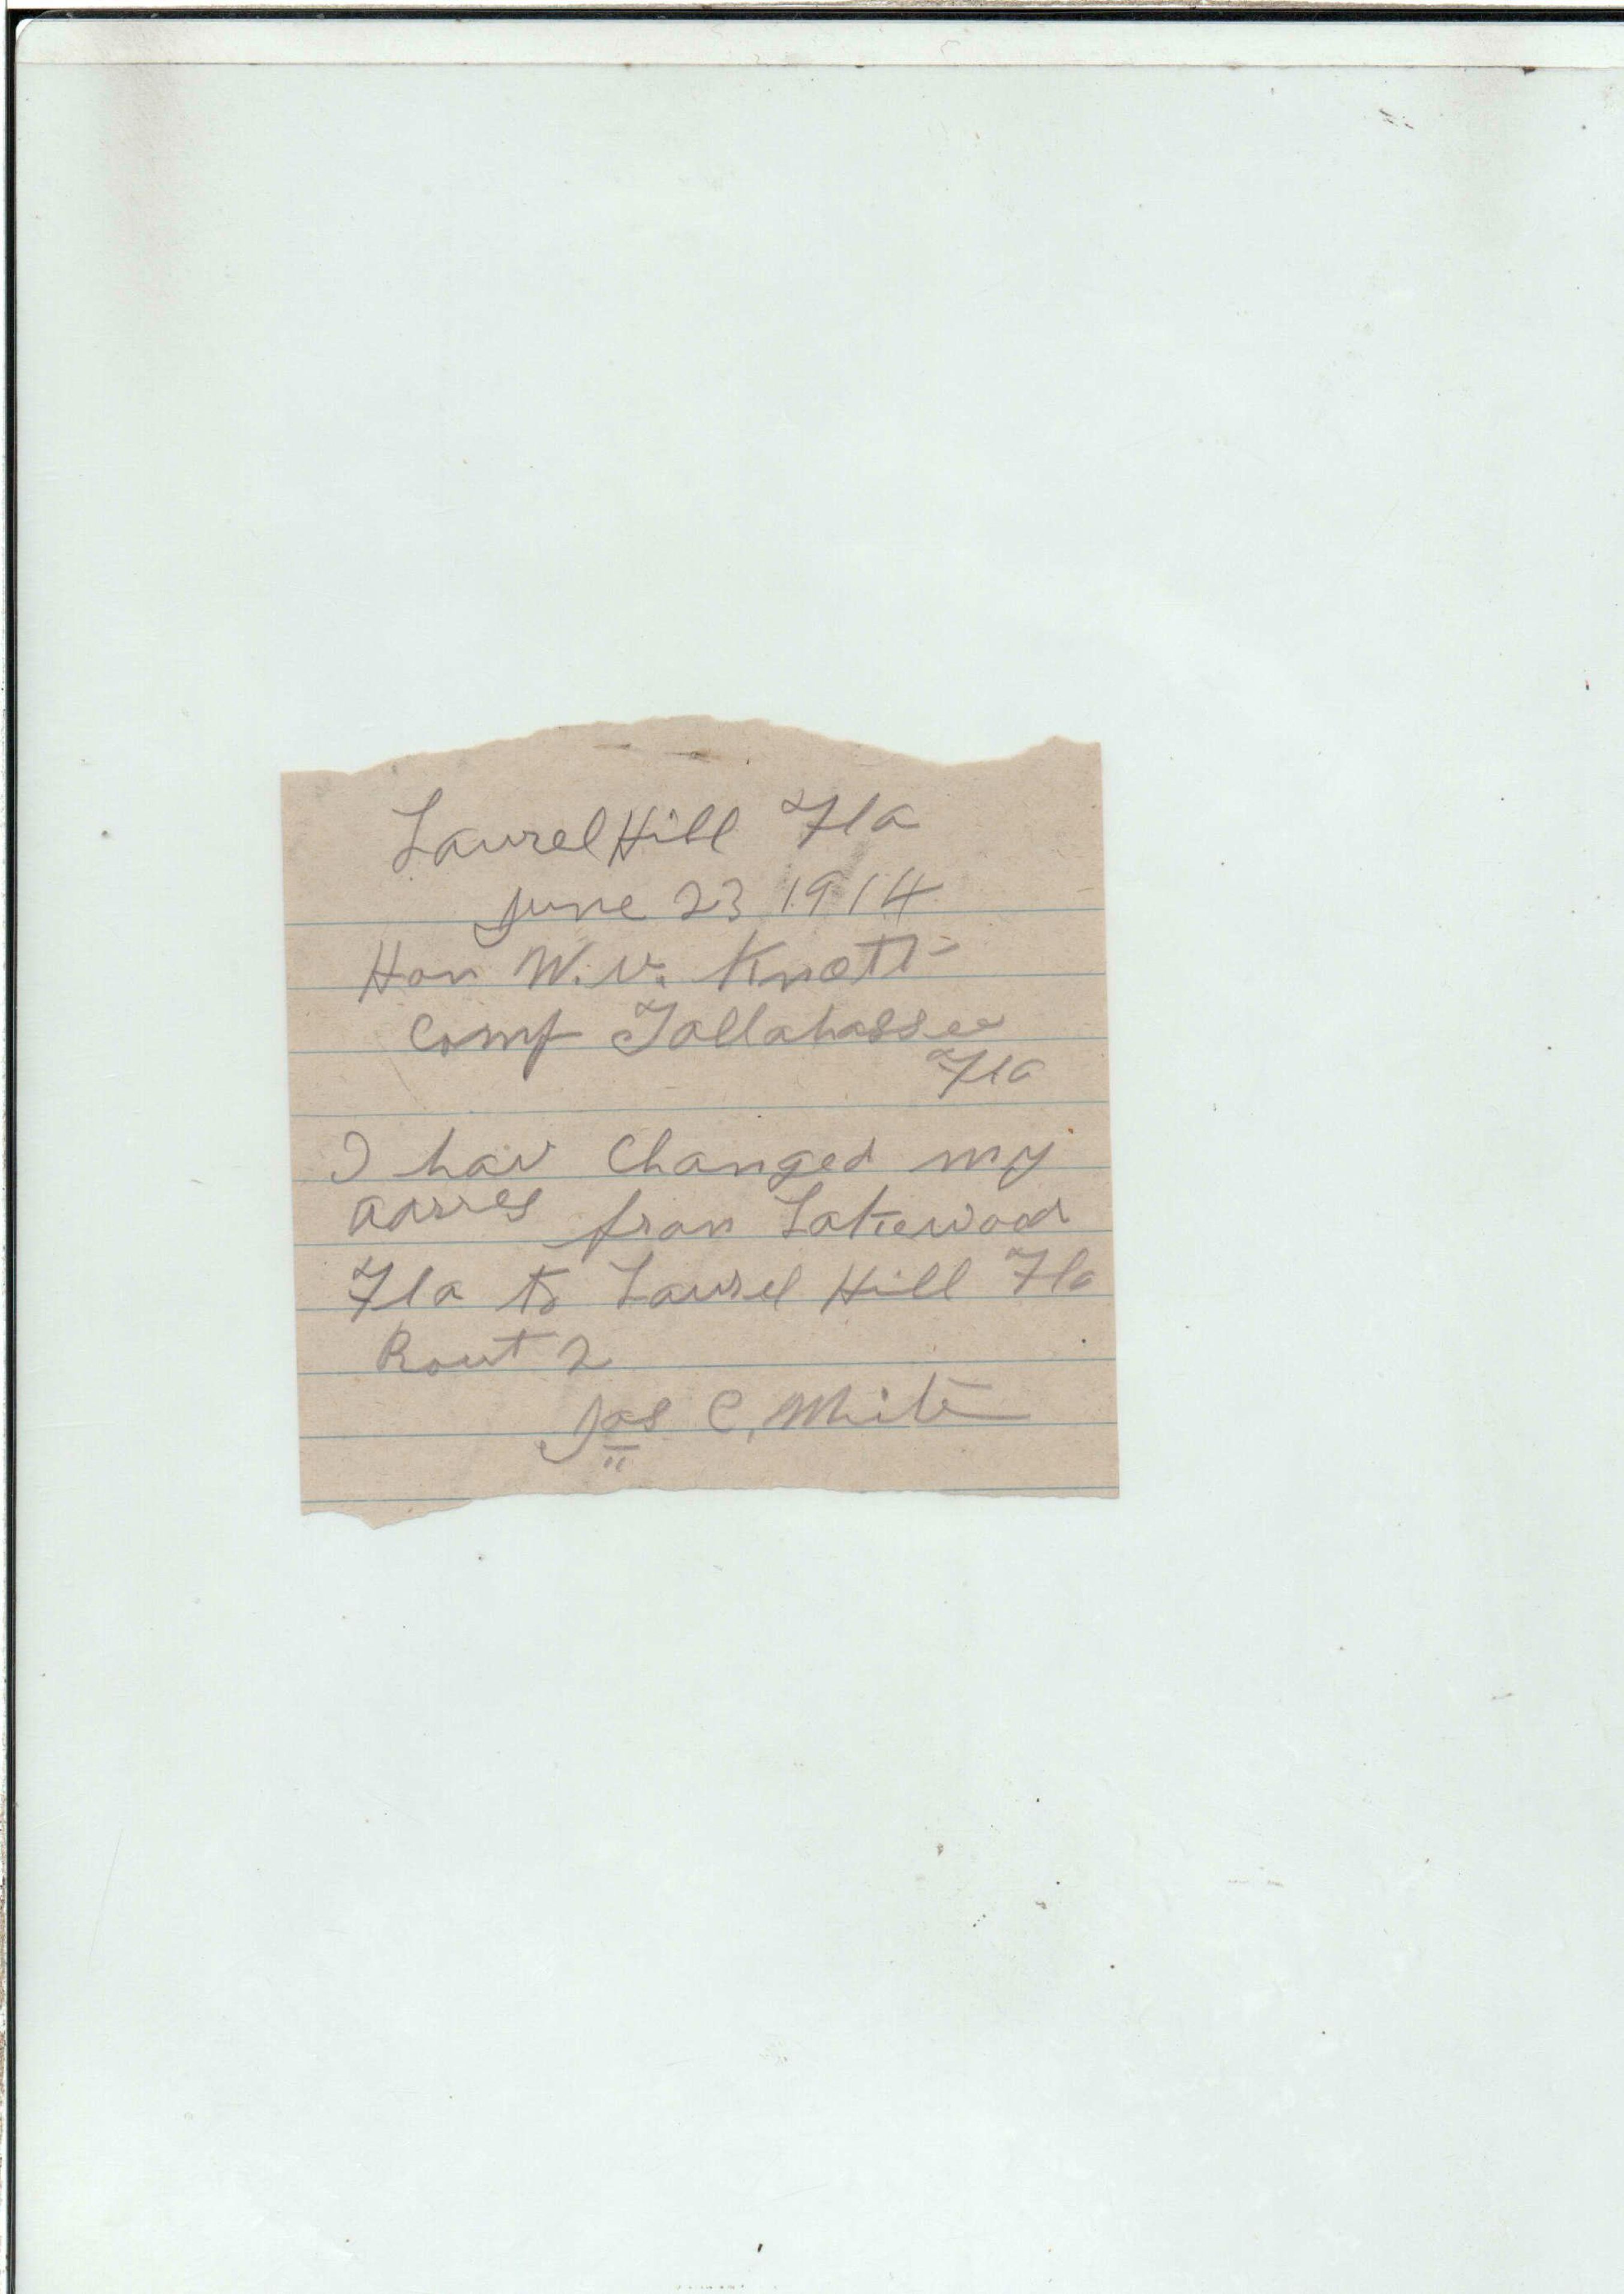 Laurel Hill Fla
June 23 1914
Hon W.V. Knott
Comp Tallahassee
Fla
I hav Changed my
adrres from Lakewood
Fla to Laurel Hill Fla
Rout 2
Jas C, White